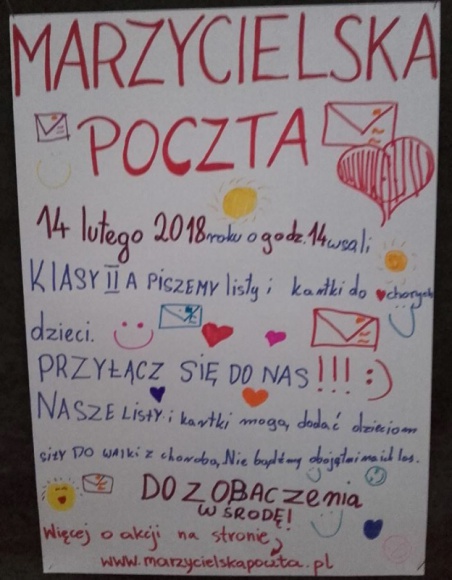 MARZYCIELSKA
POCZTA
14 lutego 2018 roku o godz. 14 w sali
KLASY II A PISZEMY listy i kartki do chorych
dzieci.
PRZYŁĄCZ SIĘ DO NAS!!! :)
NASZE LISTY i kartki mogą dodać dzieciom
siły DO walki z chorobą, Nie bądźmy obojętni na ich los.
DO ZOBACZENIA
W ŚRODĘ!
Więcej o akcji na stronie
www.marzycielskapoczta.pl